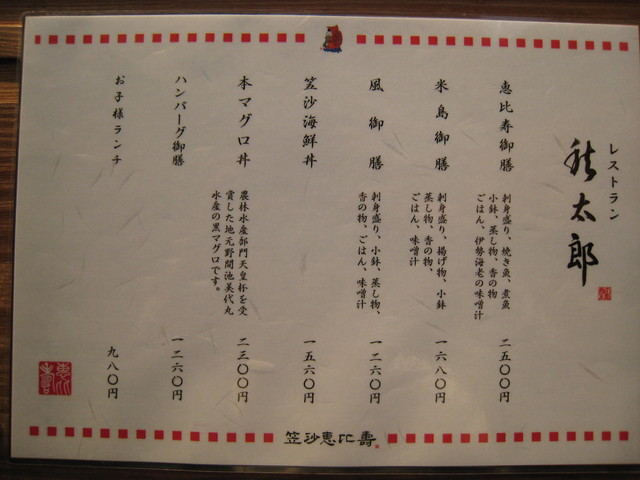 レストラン
秋太郎
恵比寿御膳
刺身盛り、焼き魚、煮魚
小鉢、蒸し物、香の物
ごはん、伊勢海老の味噌汁
二五〇〇円
米島御膳
刺身盛り、揚げ物、小鉢
蒸し物、香の物、
ごはん、味噌汁
一六八〇円
風御膳
刺身盛り、小鉢、蒸し物、
香の物、ごはん、味噌汁
一二六〇円
笠沙海鮮丼
一五六〇円
本マグロ丼
農林水産部門天皇杯を受
賞した地元野間池美代丸
水産の黒マグロです。
二三〇〇円
ハンバーグ御膳
一二六〇円
お子様ランチ
九八〇円
笠沙恵比寿